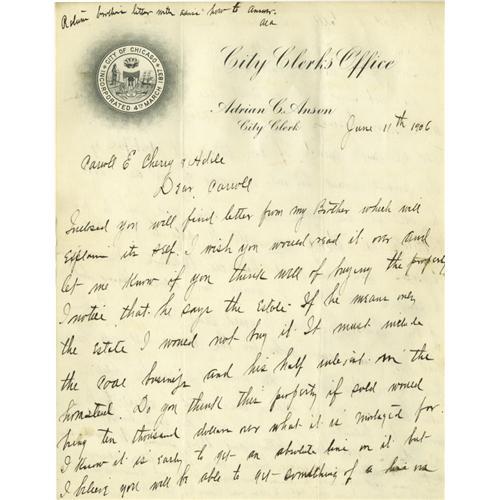 Return brothers letter with advice how to answer.
ACA
CITY OF CHICAGO
INCORPORATED 4TH MARCH 1837
City Clerks Office
Adrian C. Anson
City Clerk
June 11th 1906
Carroll E Cherry & Adele
Dear Carroll
Inclosed you will find letter from my Brother which will
Explain its self. I wish you would read it over and
let me know if you think well of buying the property
I notice that he says the Estate. If he means only
the Estate I would not buy it. It must include
the coal business and his half interest in the
homstead. Do you think this property if sold would
bring ten thousand dollars over what it is mortaged for.
I know it is early to get an absolute line on it but
I believe you will be able to get something of a line on